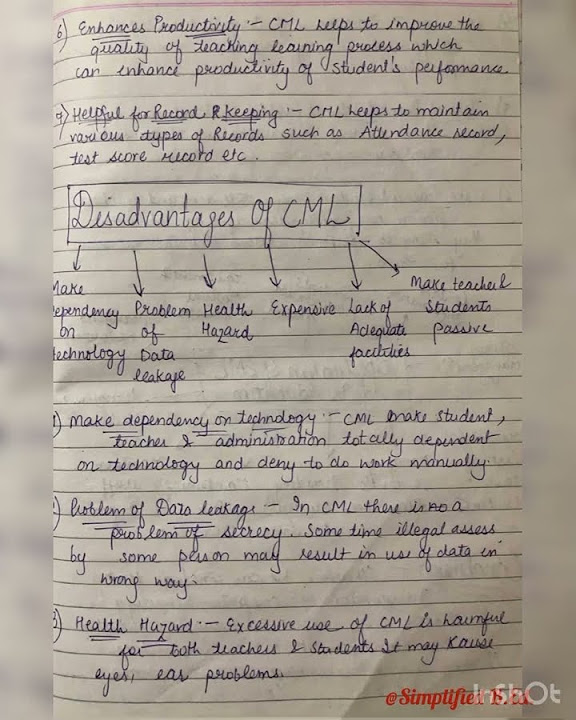 6) Enhances Productivity :- CML helps to improve the
quality of teaching learning process which
can enhance productivity of student's performance
7) Helpful for Record Keeping :- CML helps to maintain
various types of Records such as Attendance record,
test score record etc.
Disadvantages Of CML
Make dependency on technology
Problem of Data leakage
Health Hazard
Expensive
Lack of Adequate facilities
Make teacher & Students passive
1) Make dependency on technology :- CML make student,
teacher & administration totally dependent
on technology and deny to do work manually.
2) Problem of Data leakage :- In CML there is a
problem of secrecy. Some time illegal assess
by some person may result in use of data in
wrong way.
3) Health Hazard :- Excessive use of CML is harmful
for both teachers & students It may Kause
eyes, ear problems.
@Simplifier B.Ed
InShOt